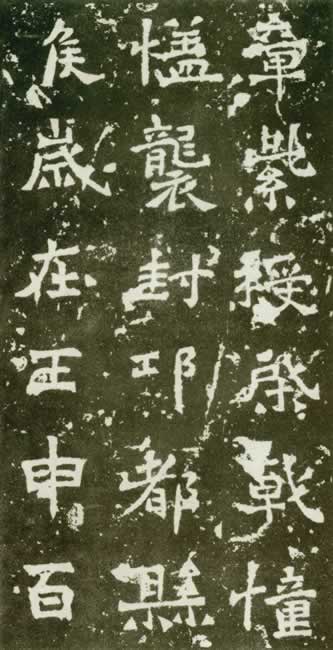 章紫綬棨戟幢
襲封邛都縣
侯歲在壬申百